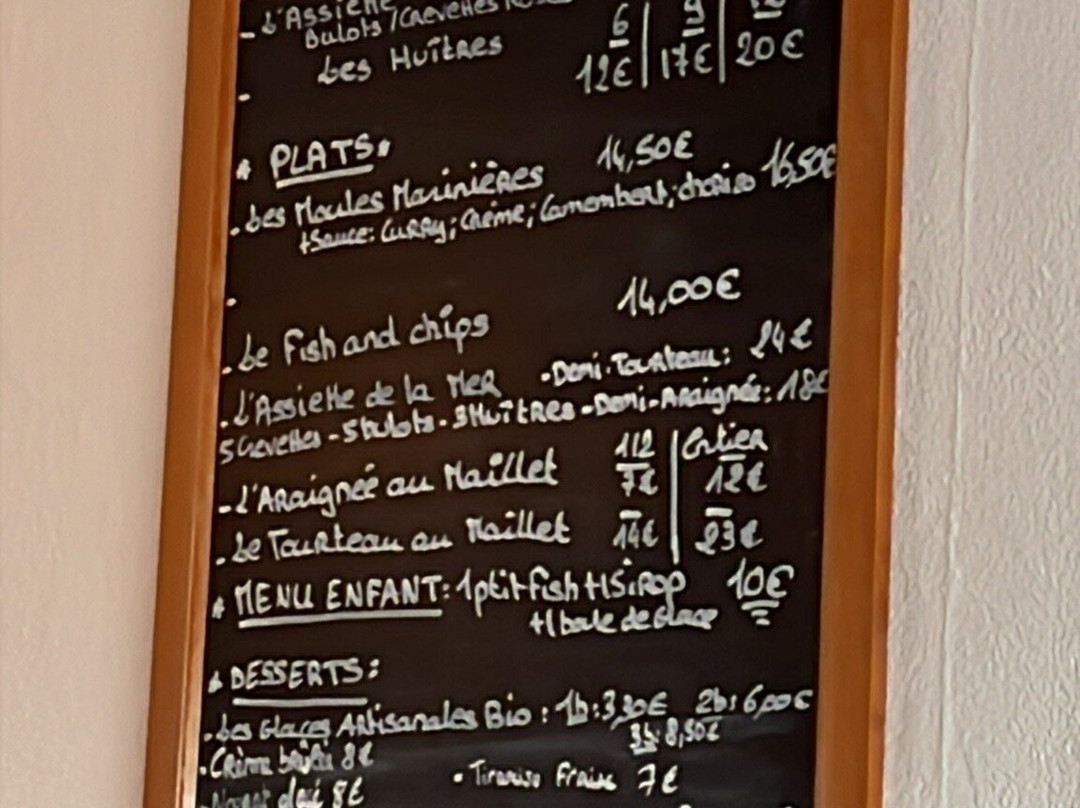 - L'Assiette
Bulots / Crevettes
Les Huîtres 6 | 9 |
12€ | 17€ | 20€
* PLATS:
. Les Moules Marinières 14,50€
+Sauce: Curry; Crème; Camembert; chorizo 16,50€
. Le Fish and chips 14,00€
. L'Assiette de la Mer - Demi-Tourteau: 24€
5 Crevettes - 5 bulots - 3 Huîtres - Demi-Araignée: 18€
- L'Araignée au Maillet 1/2 7€ | Entier 12€
. Le Tourteau au Maillet 14€ | 23€
* MENU ENFANT: 1 ptit fish +1 Sirop 10€
+1 boule de glace
* DESSERTS:
. Les Glaces Artisanales Bio: 1b: 3,30€ 2b: 6,00€
3b: 8,50€
. Crème brûlée 8€
. Tiramisu Fraise 7€
. Nougat glacé 8€